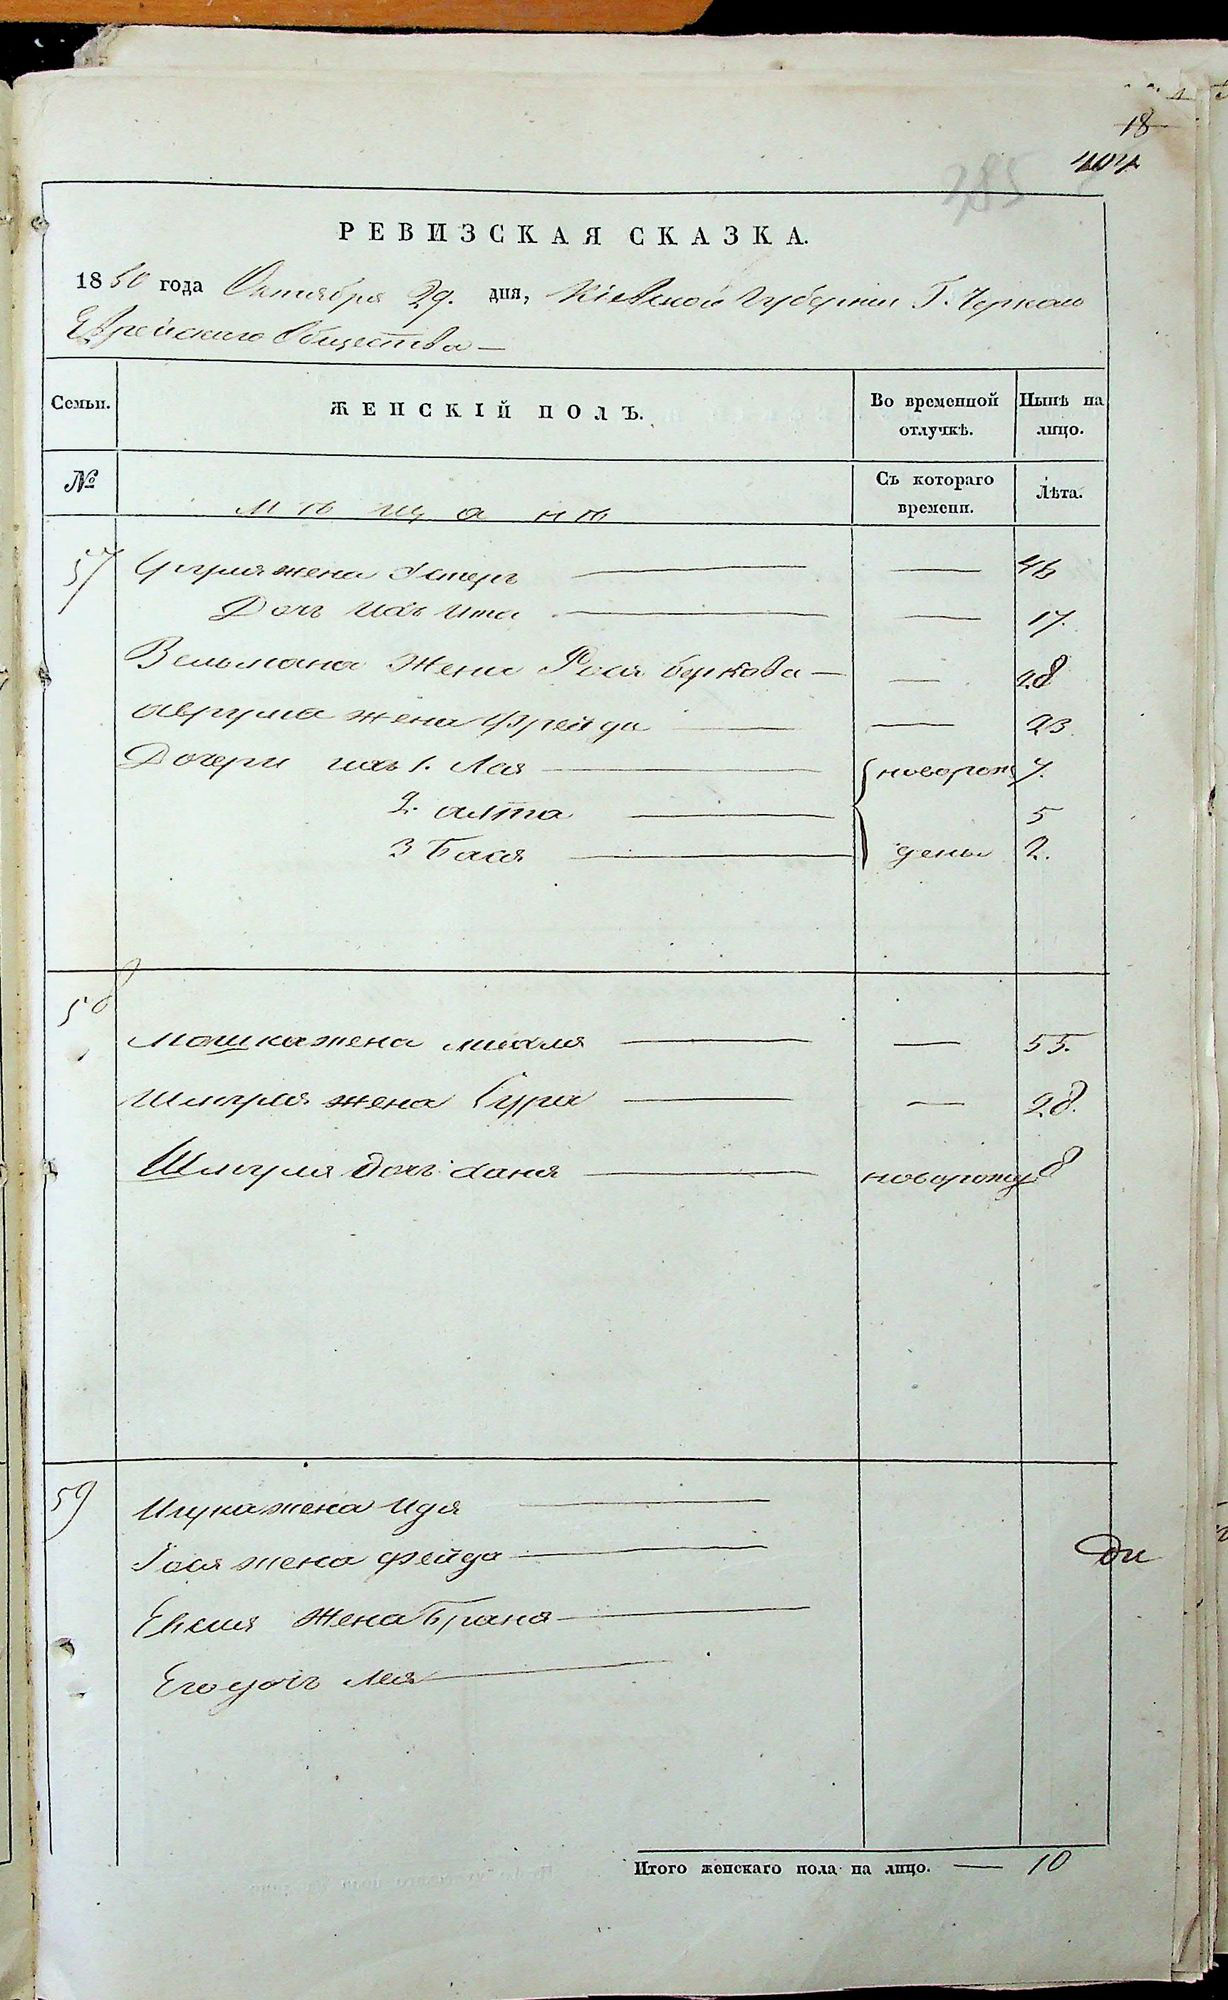 18
404
385
РЕВИЗСКАЯ СКАЗКА.
1850 года Октября 29. дня, Кіевской Губерніи Г. Черкасъ
Еврейскаго Общества —
Семьи. ЖЕНСКІЙ ПОЛЪ. Во временной отлучкѣ. Нынѣ на лицо.
№ Мѣщанѣ Съ котораго времени. Лѣта.
57 жена Эстеръ — — 46
Дочь ихъ Ита — — 17.
Вельмана жена Рося Беркова — — 28
Аврума жена Фрейда — — 23
Дочери ихъ 1. Лая — новорож 7.
2. Алта — 5
3 Бася — дены 2.
58
Мошка жена Михля — — 55.
Шмуля жена Сура — — 28.
Шмуля дочь Ханя — новорожд 8
59 Ицка жена Идя —
жена Фейда —
жена Браня —
ди
Его дочь Лея —
Итого женскаго пола на лицо. — 10